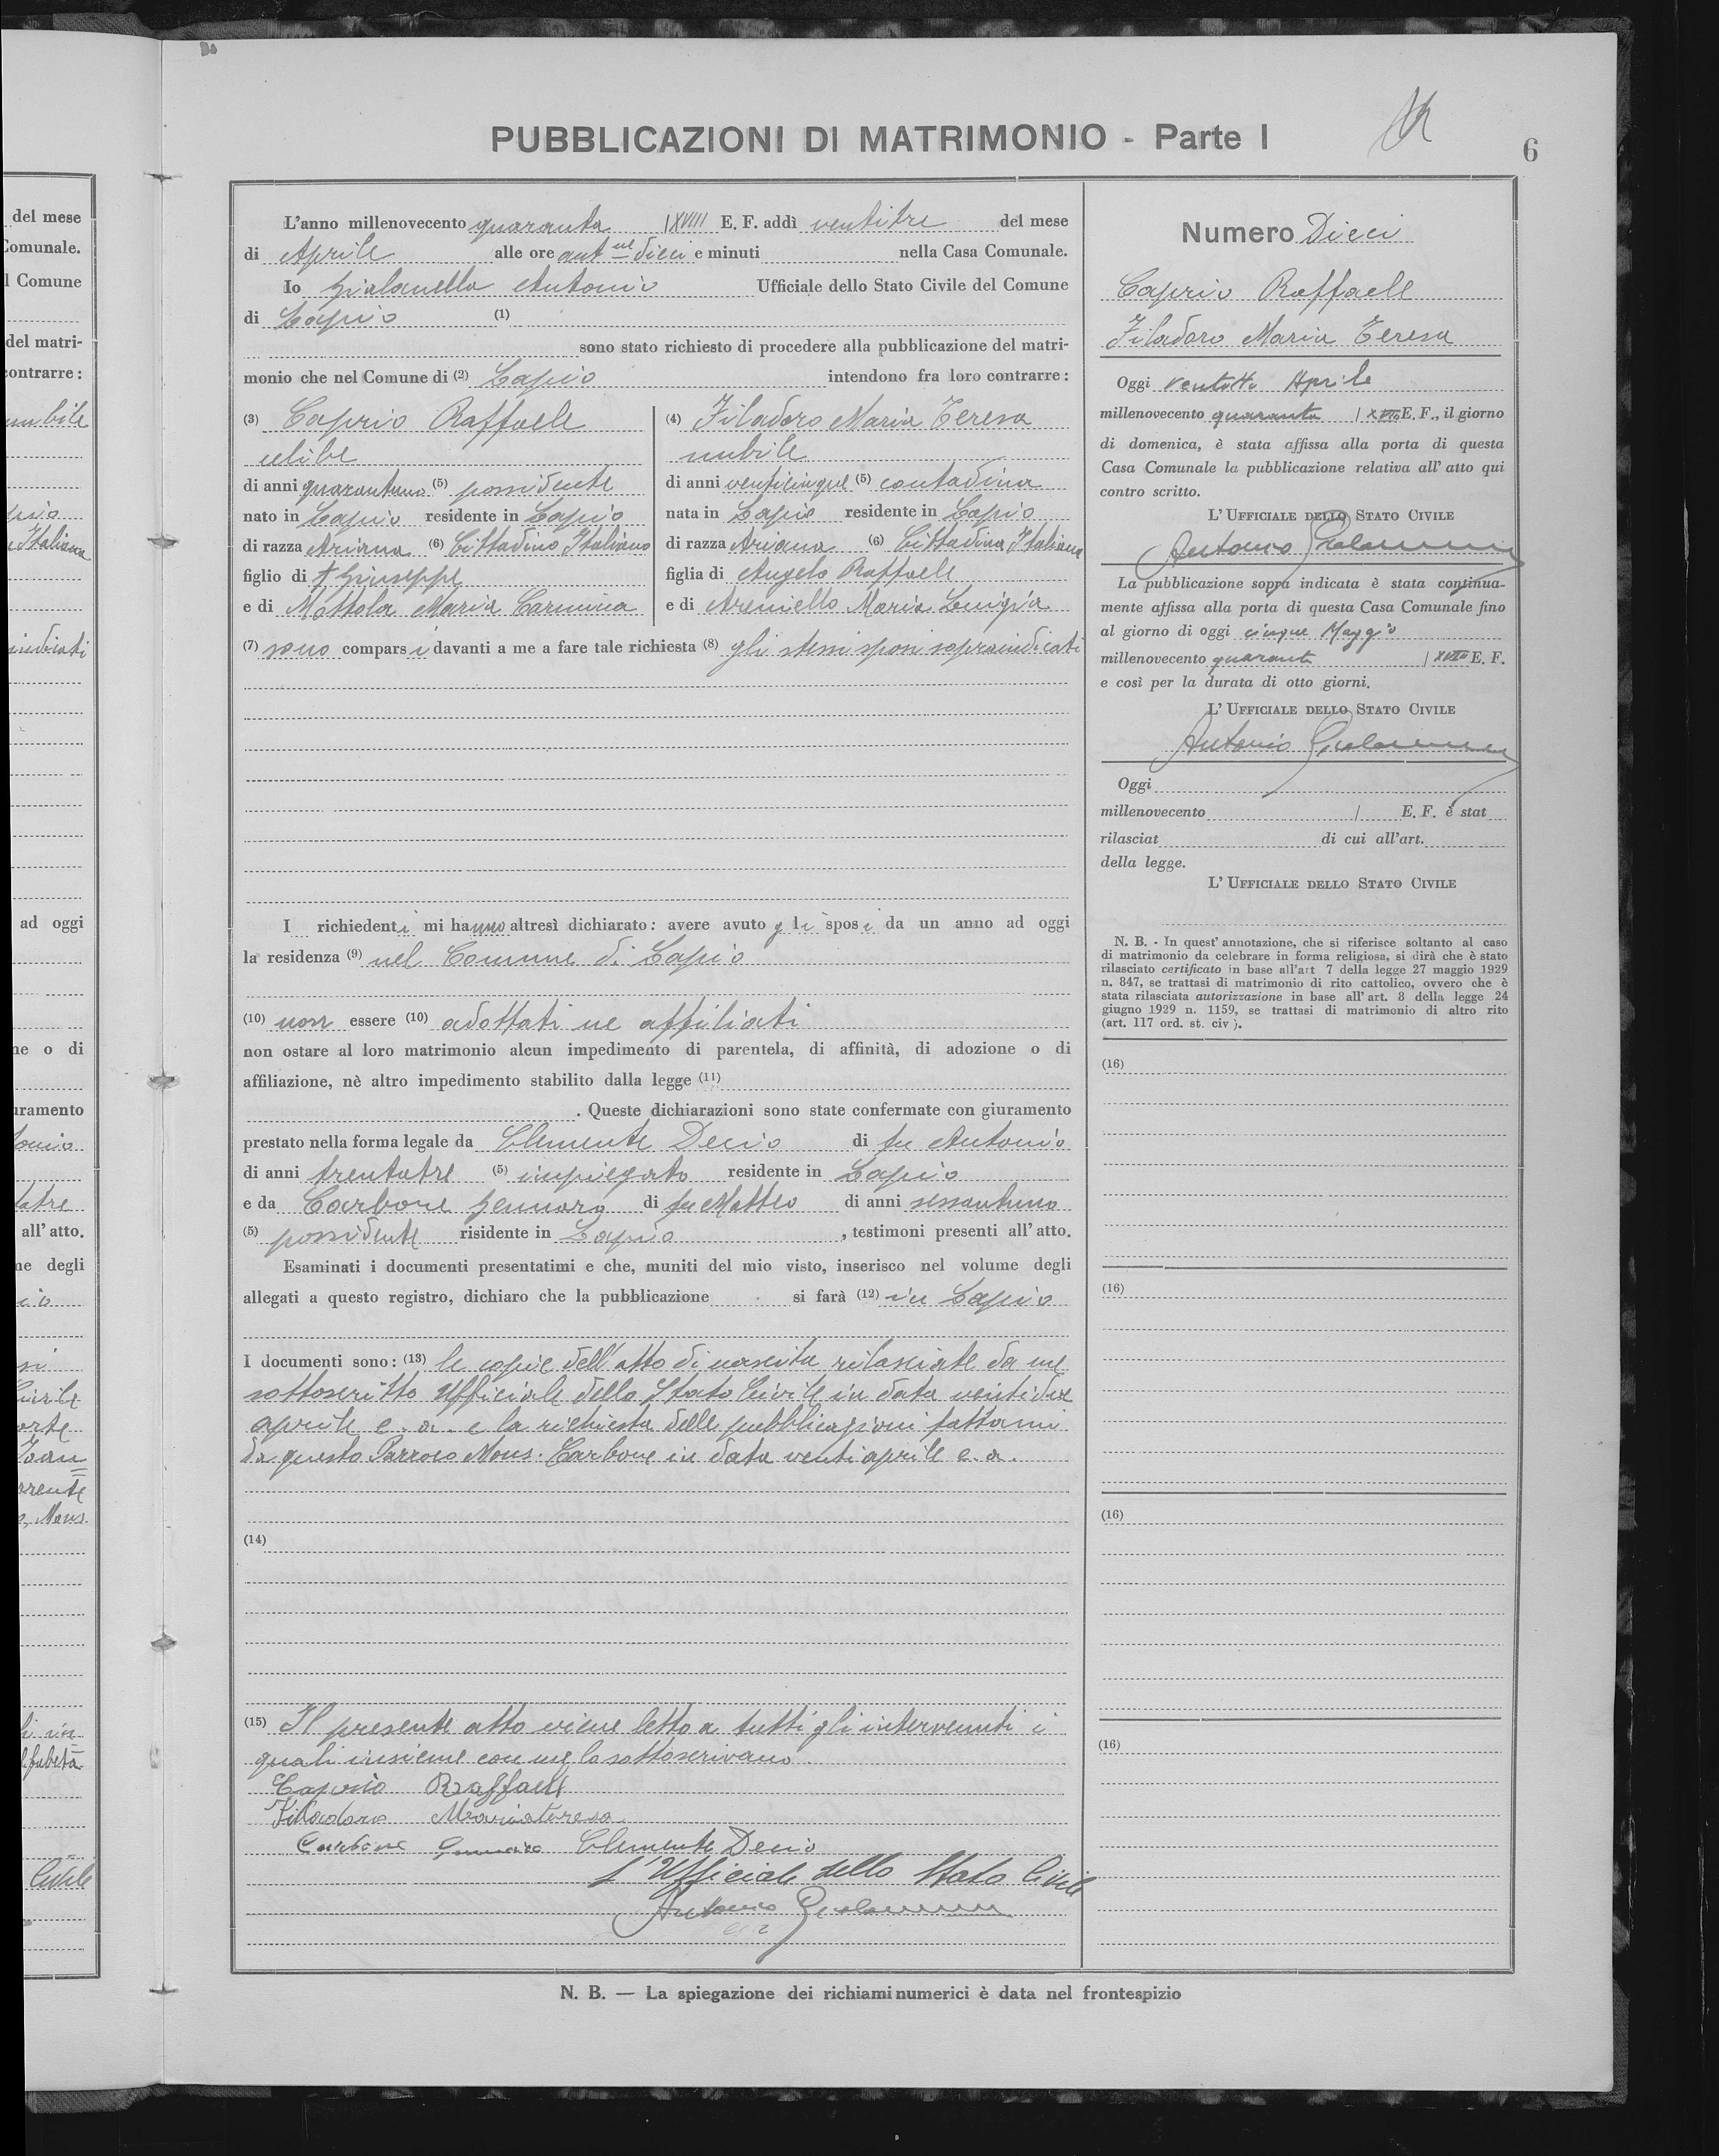 PUBBLICAZIONI DI MATRIMONIO - Parte I
6
L'anno millenovecento quaranta / XVIII E. F. addì ventitre del mese
di Aprile alle ore ant.ne dieci e minuti nella Casa Comunale.
Io Gialanella Antonio Ufficiale dello Stato Civile del Comune
di Lapio (1)
sono stato richiesto di procedere alla pubblicazione del matri-
monio che nel Comune di (2) Lapio intendono fra loro contrarre:
(3) Caprio Raffaele
celibe
di anni quarantuno (5) possidente
nato in Lapio residente in Lapio
di razza Ariana (6) Cittadino Italiano
figlio di † Giuseppe
e di Mottola Maria Carmina
(4) Filadoro Maria Teresa
nubile
di anni venticinque (5) contadina
nata in Lapio residente in Lapio
di razza Ariana (6) Cittadina Italiana
figlia di Angelo Raffaele
e di Areniello Maria Luigia
(7) sono comparsi davanti a me a fare tale richiesta (8) gli stessi sposi sopraindicati
I richiedenti mi hanno altresì dichiarato: avere avuto gli sposi da un anno ad oggi
la residenza (9) nel Comune di Lapio
(10) non essere (10) adottati ne affiliati
non ostare al loro matrimonio alcun impedimento di parentela, di affinità, di adozione o di
affiliazione, nè altro impedimento stabilito dalla legge (11)
. Queste dichiarazioni sono state confermate con giuramento
prestato nella forma legale da Clemente Decio di fu Antonio
di anni trentatre (5) impiegato residente in Lapio
e da Carbone Gennaro di fu Matteo di anni sessantuno
(5) possidente risidente in Lapio , testimoni presenti all'atto.
Esaminati i documenti presentatimi e che, muniti del mio visto, inserisco nel volume degli
allegati a questo registro, dichiaro che la pubblicazione si farà (12) in Lapio
I documenti sono: (13) le copie dell'atto di nascita rilasciate da me
sottoscritto Ufficiale dello Stato Civile in data ventidue
aprile c. a. e la richiesta delle pubblicazioni fattami
da questo Parroco Mons. Carbone in data venti aprile c. a.
(14)
(15) Il presente atto viene letto a tutti gli intervenuti i
quali insieme con me lo sottoscrivano
Caprio Raffaele
Filadoro Mariateresa
Carbone Gennaro Clemente Decio
L'Ufficiale dello Stato Civile
Antonio Gialanella
Numero Dieci
Caprio Raffaele
Filadoro Maria Teresa
Oggi ventotto Aprile
millenovecento quaranta / XVIII E. F., il giorno
di domenica, è stata affissa alla porta di questa
Casa Comunale la pubblicazione relativa all'atto qui
contro scritto.
L'UFFICIALE DELLO STATO CIVILE
Antonio Gialanella
La pubblicazione sopra indicata è stata continua-
mente affissa alla porta di questa Casa Comunale fino
al giorno di oggi cinque Maggio
millenovecento quaranta / XVIII E. F.
e così per la durata di otto giorni.
L'UFFICIALE DELLO STATO CIVILE
Antonio Gialanella
Oggi
millenovecento / E. F. è stat
rilasciat di cui all'art.
della legge.
L'UFFICIALE DELLO STATO CIVILE
N. B. - In quest'annotazione, che si riferisce soltanto al caso
di matrimonio da celebrare in forma religiosa, si dirà che è stato
rilasciato certificato in base all'art 7 della legge 27 maggio 1929
n. 847, se trattasi di matrimonio di rito cattolico, ovvero che è
stata rilasciata autorizzazione in base all'art. 8 della legge 24
giugno 1929 n. 1159, se trattasi di matrimonio di altro rito
(art. 117 ord. st. civ ).
(16)
(16)
(16)
(16)
N. B. — La spiegazione dei richiami numerici è data nel frontespizio